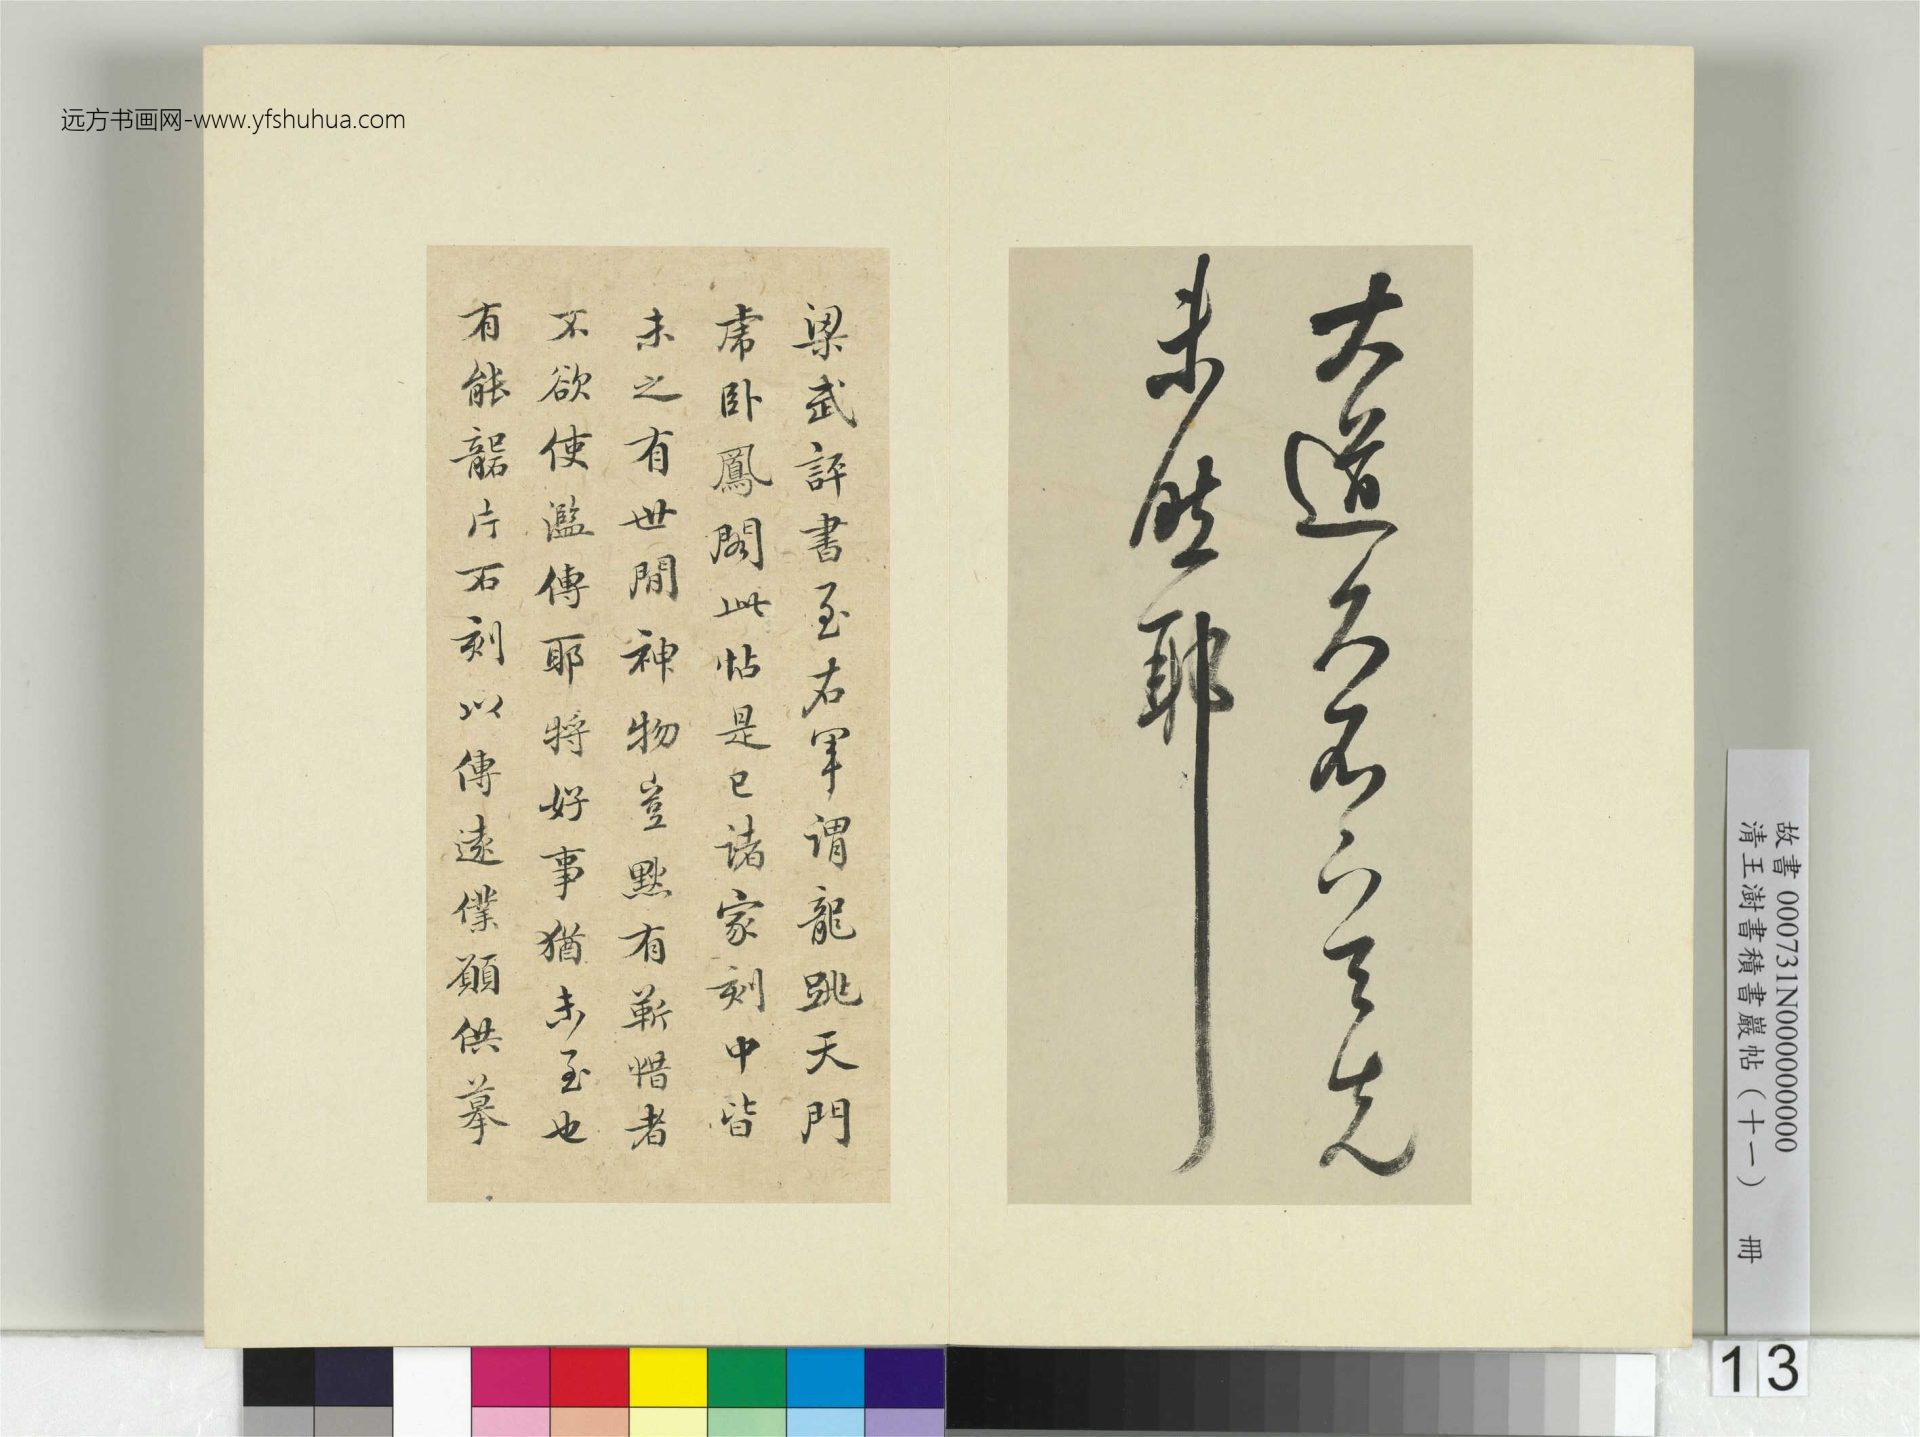 远方书画网-www.yfshuhua.com
大道久不下与先
未然耶
梁武評書至右軍謂龍跳天門
虎卧鳳閣此帖是已諸家刻中皆
未之有世間神物豈默有蘄惜者
不欲使濫傳耶將好事猶未至也
有能礱片石刻以傳遠僕願供摹
故書 000731N000000000
清王澍書積書巖帖（十一） 冊
13